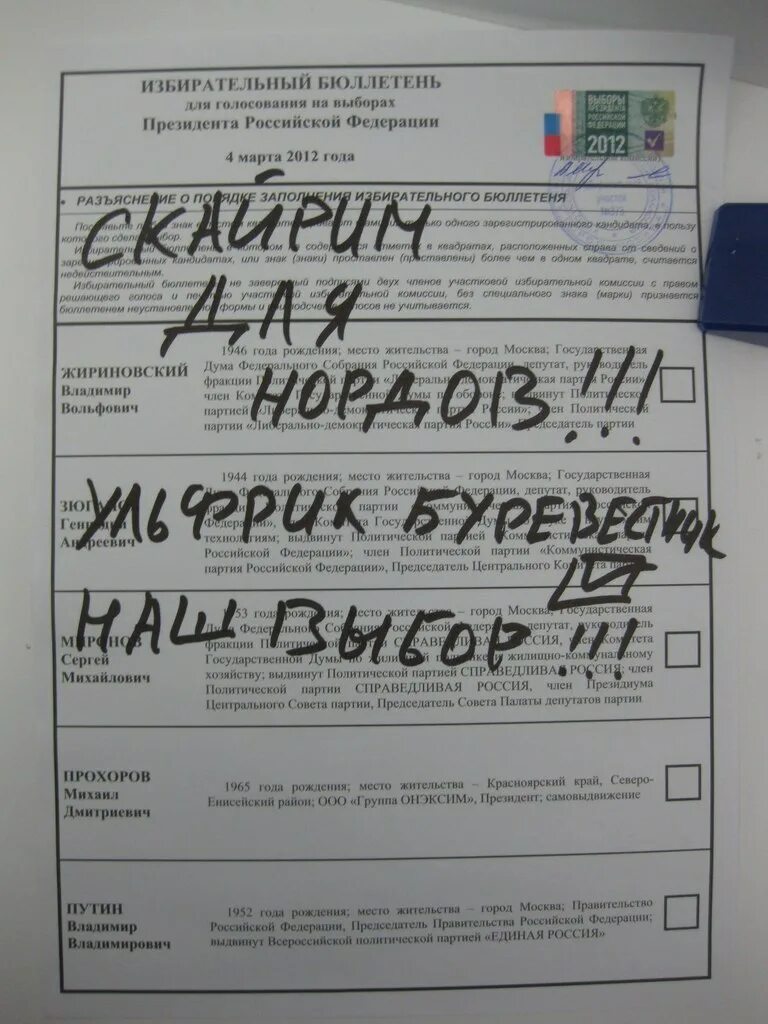 ИЗБИРАТЕЛЬНЫЙ БЮЛЛЕТЕНЬ
для голосования на выборах
Президента Российской Федерации
4 марта 2012 года
ВЫБОРЫ
ПРЕЗИДЕНТА
РОССИЙСКОЙ
ФЕДЕРАЦИИ
2012
• РАЗЪЯСНЕНИЕ О ПОРЯДКЕ ЗАПОЛНЕНИЯ ИЗБИРАТЕЛЬНОГО БЮЛЛЕТЕНЯ
только одного зарегистрированного кандидата, в пользу
в квадратах, расположенных справа от сведений о
зарегистрированных кандидатах, или знак (знаки) проставлен (проставлены) более чем в одном квадрате, считается
недействительным.
Избирательный бюллетень, не заверенный подписями двух членов участковой избирательной комиссии с правом
решающего голоса и печатью участковой избирательной комиссии, без специального знака (марки) признается
бюллетенем неустановленной формы и при подсчете голосов не учитывается.
СКАЙРИМ
ДЛЯ
НОРДОВ!!!
УЛЬФРИК БУРЕВЕСТНИК
НАШ ВЫБОР!!!
ЖИРИНОВСКИЙ
Владимир
Вольфович
1946 года рождения; место жительства – город Москва; Государственная
Дума Федерального Собрания Российской Федерации, депутат, руководитель
фракции Политической партии «Либерально-демократическая партия России»,
член Комитета Государственной Думы по обороне; выдвинут Политической
партией «Либерально-демократическая партия России»; член Политической
партии «Либерально-демократическая партия России», Председатель партии
ЗЮГАНОВ
Геннадий
Андреевич
1944 года рождения; место жительства – город Москва; Государственная
Дума Федерального Собрания Российской Федерации, депутат, руководитель
фракции Политической партии «Коммунистическая партия
Российской Федерации», член Комитета Государственной Думы по
технологиям; выдвинут Политической партией «Коммунистическая партия
Российской Федерации»; член Политической партии «Коммунистическая
партия Российской Федерации», Председатель Центрального Комитета партии
МИРОНОВ
Сергей
Михайлович
1953 года рождения; место жительства – город Москва; Государственная
Дума Федерального Собрания Российской Федерации, депутат, руководитель
фракции Политической партии СПРАВЕДЛИВАЯ РОССИЯ, член Комитета
Государственной Думы по жилищной политике и жилищно-коммунальному
хозяйству; выдвинут Политической партией СПРАВЕДЛИВАЯ РОССИЯ; член
Политической партии СПРАВЕДЛИВАЯ РОССИЯ, член Президиума
Центрального Совета партии, Председатель Совета Палаты депутатов партии
ПРОХОРОВ
Михаил
Дмитриевич
1965 года рождения; место жительства – Красноярский край, Северо-
Енисейский район; ООО «Группа ОНЭКСИМ», Президент; самовыдвижение
ПУТИН
Владимир
Владимирович
1952 года рождения; место жительства – город Москва; Правительство
Российской Федерации, Председатель Правительства Российской Федерации;
выдвинут Всероссийской политической партией «ЕДИНАЯ РОССИЯ»